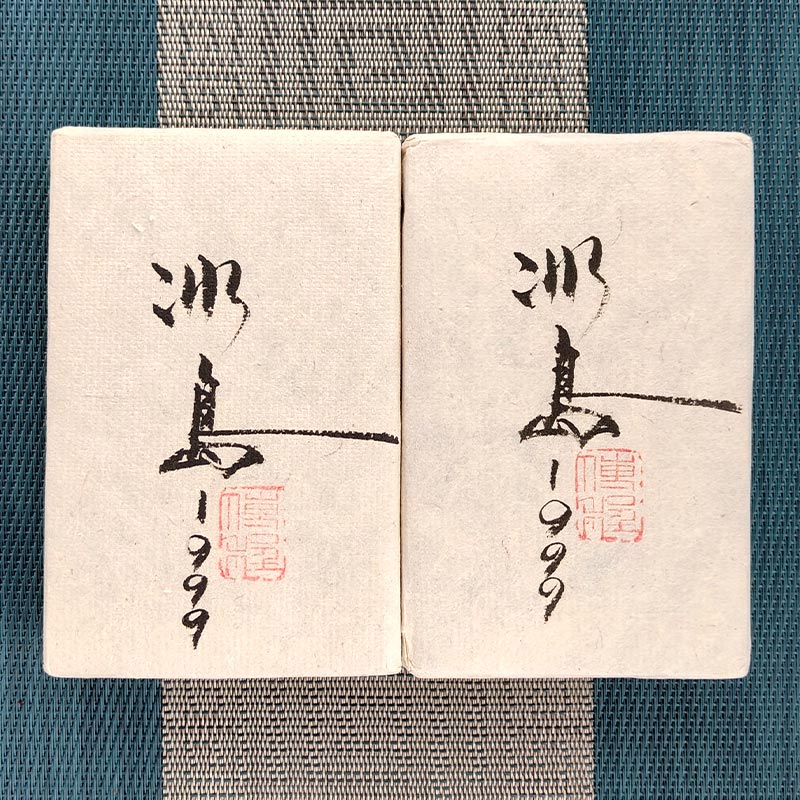 冰島1999
冰島1999